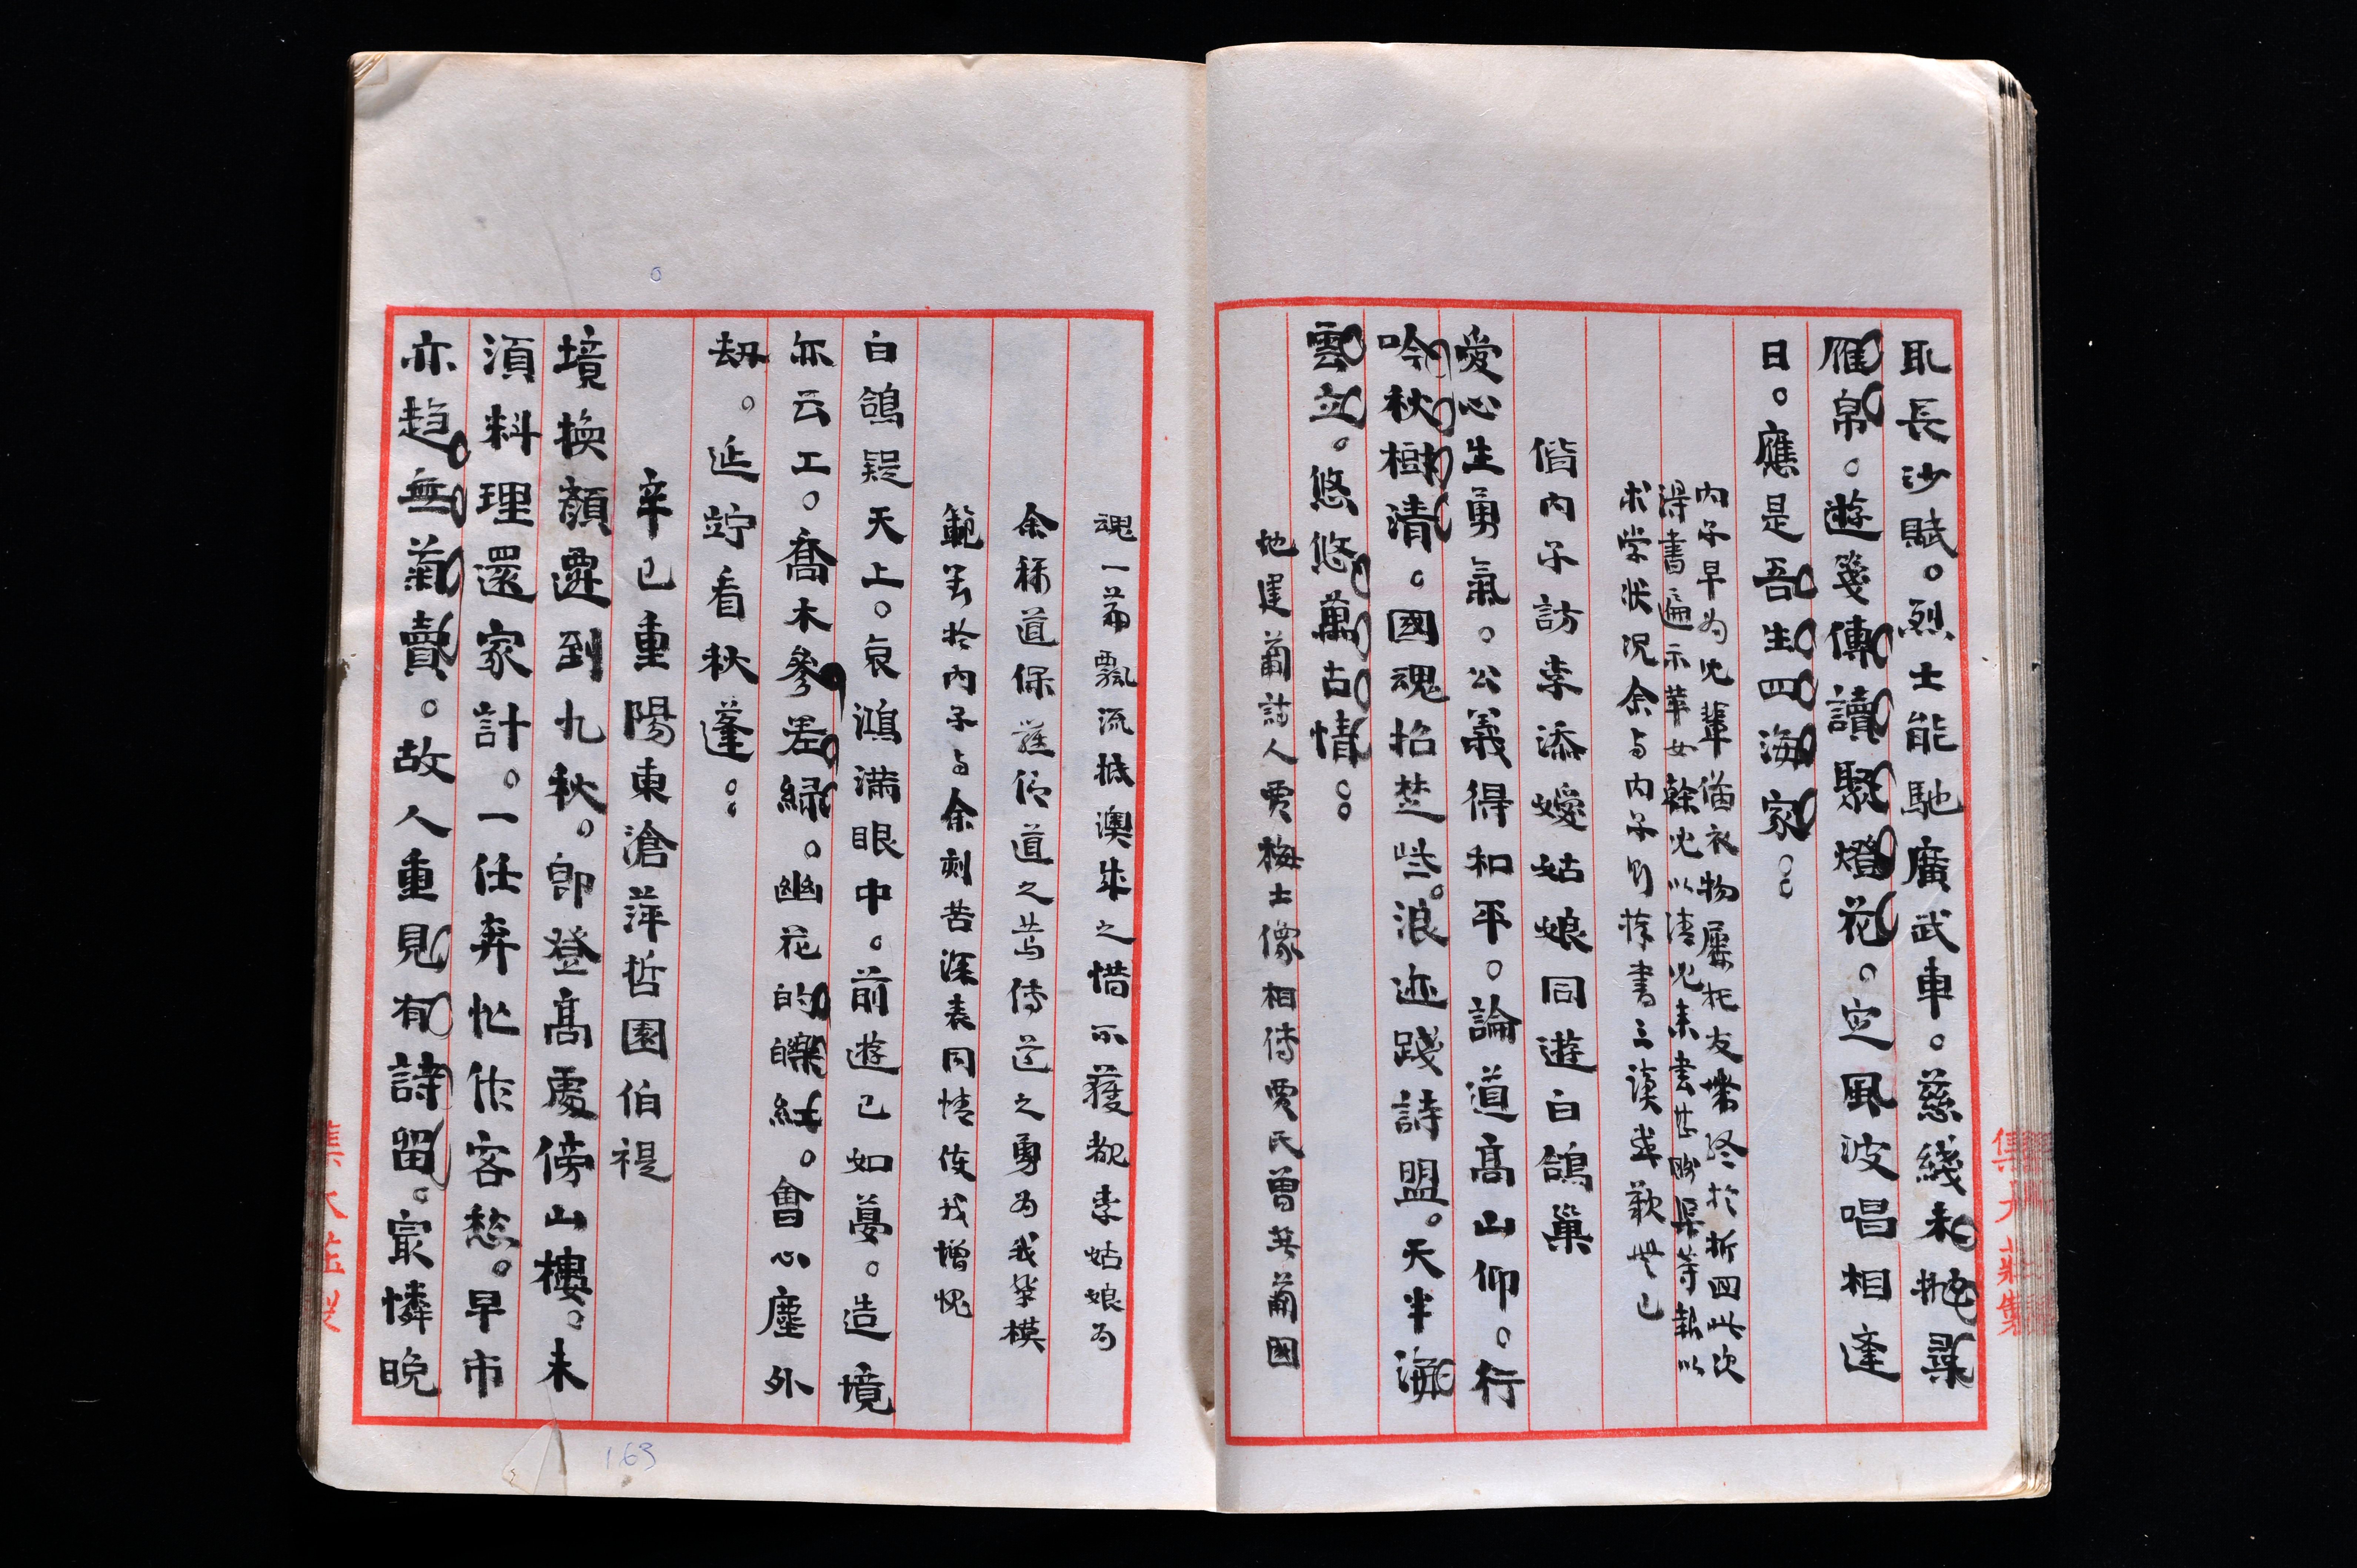 耴長沙賦。烈士能馳廣武車。慈綫未抛尋
雁帛。遊箋傳讀聚燈花。定風波唱相逢
日。應是吾生四海家。
內子早為兒輩備衣物屢托友帶終於折回此次
得書遍示華女榦兒以清兒来書甚盼渠等報以
求学狀况余与內子則葆書三讀業歡
偕內子訪李添嬡姑娘同遊白鴿巢
愛心生勇氣。公義得和平。論道高山仰。行
吟秋樹清。國魂招楚些。浪迹踐詩盟。天半海
雲立。悠悠萬古情。
地建葡詩人賈梅士像相傳賈氏曾英葡國
魂一篇飄流抵澳失之惜不獲觀李姑娘為
余稱道保羅行道之篤傳道之勇為我輩模
範並於內子与余刻苦深表同情使我增愧
白鴿疑天上。哀鴻滿眼中。前遊已如夢。造境
亦云工。喬木參差綠。幽花的皪紅。會心塵外
劫。延竚看秋蓬。
辛已重陽東滄萍哲園伯禔
境換顏遷到九秋。郎登高處傍山樓。未
湏料理還家計。一任奔忙作客愁。早市
亦趋無菊賣。故人重見有詩留。㝡憐晚
集大莊製
163